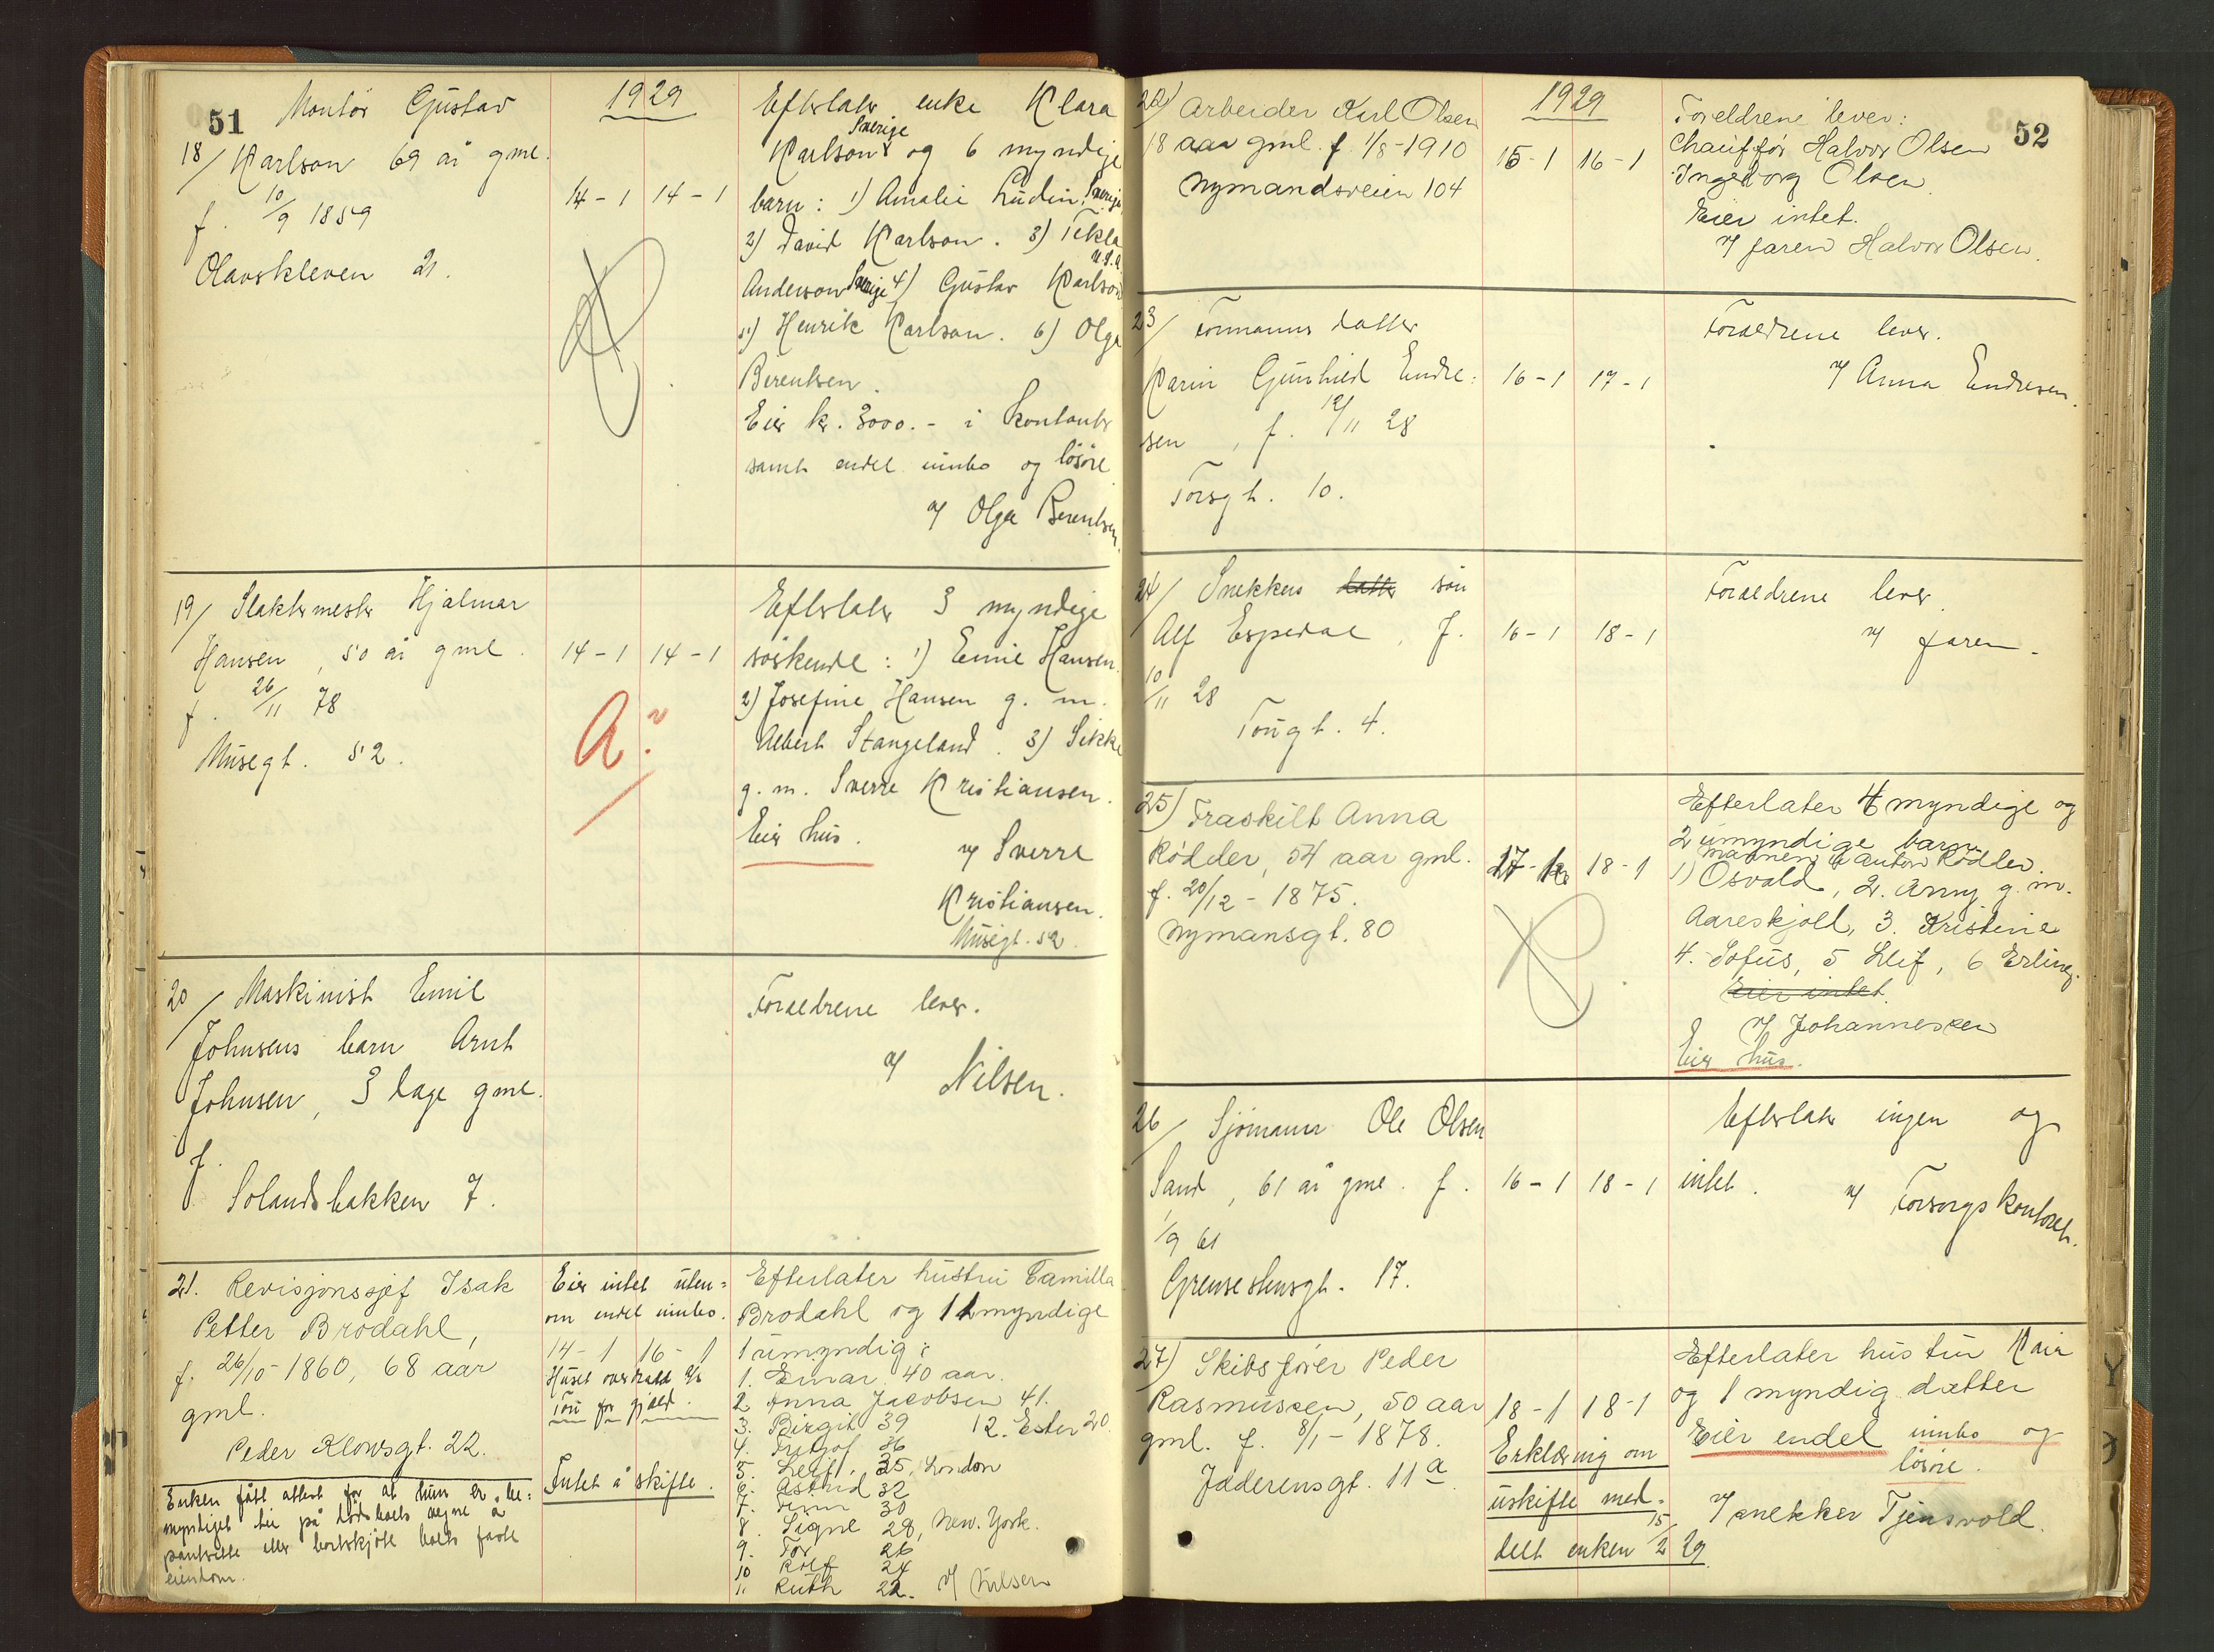 51
Montør Gustav
18/ Karlson 69 år gml.
f. 10/9 1859
Olavskleven 21.
1929
14-1 14-1
Efterlater enke Klara
Karlson Sverige og 6 myndige
barn: 1) Amalie Ludin, Sverige
2) David Karlson. 3) Tekla
Anderson Sverige 4) Gustav Karlson U.S.A.
5) Henrik Karlson. 6) Olga
Berentsen.
Eier kr. 3000.- i kontanter
samt endel innbo og løsøre.
v/ Olga Berentsen.
19/ Slaktermester Hjalmar
Hansen, 50 år gml.
f. 26/11 78
Musegt. 52.
14-1 14-1
A?
Efterlater 3 myndige
søskende: 1) Emil Hansen.
2) Josefine Hansen g. m.
Albert Stangeland. 3) Sikke
g. m. Sverre Kristiansen.
Eier hus.
v/ Sverre
Kristiansen.
Musegt. 52.
20/ Maskinist Emil
Johnsens barn Arnt
Johnsen, 3 dage gml.
f.
Solandsbakken 7.
Foreldrene lever.
v/ Nilsen.
21. Revisjonssjef Isak
Petter Brodahl,
f. 26/10-1860, 68 aar
gml.
Peder Klowsgt. 22.
Enken fått attest for at hun er be:
myndiget til på dødsboets vegne å
pantsette eller bortskjøte boets faste
eiendom.
Eier intet uten=
om endel innbo.
14-1 16-1
Huset overdratt
for gjæld.
Intet å skifte.
Efterlater hustru Camilla
Brodahl og 11 myndige
1 umyndig:
1. Einar 40 aar.
2 Anna Jacobsen 41.
3. Birgit 39 12. Ester 20
4. Fritjof 36
5. Leif, 35, London
6. Astrid 32
7. Finn 30
8. Signe 28, New. York.
9. Tor 26
10 Rolf 24
11 Ruth 22. v/ Nilsen
52
22) Arbeider Karl Olsen
18 aar gml. f. 1/8-1910
Nymandsveien 104
1929
15-1 16-1
Foreldrene lever:
Chauffør Halvor Olsen
Ingeborg Olsen.
Eier intet.
v/ faren Halvor Olsen.
23/ Formanns datter
Karin Gunhild Endre:
sen, f. 12/11 28
Torsgt. 10.
16-1 17-1
Foreldrene lever.
v/ Anna Endresen.
24/ Snekkers datter søn
Alf Espedal, f.
10/11 28
Tougt. 4.
16-1 18-1
Foreldrene lever.
v/ faren.
25) Fraskilt Anna
Rødder, 54 aar gml.
f. 20/12-1875.
Nymansgt. 80
18-1
Efterlater 4 myndige og
2 umyndige barn.
mannen Anton Rødder.
1) Osvald, 2. Anny g. m.
Aareskjold, 3. Kristine
4. Sofus, 5 Leif, 6 Erling.
Eier intet.
v/ Johannessen
Eier hus.
26/ Sjømann Ole Olsen
Sand, 61 år gml. f.
1/9 61
Grensestensgt. 17.
16-1 18-1
Efterlater ingen og
intet.
v/ Forsorgskontoret.
27) Skibsfører Peder
Rasmussen, 50 aar
gml. f. 8/1-1878.
Jæderensgt. 11a.
18-1 18-1
Erklæring om
uskifte med=
delt enken 15/2 29
Efterlater hustru
og 1 myndig datter
Eier endel innbo og
løsøre.
v/ snekker Tjensvold.